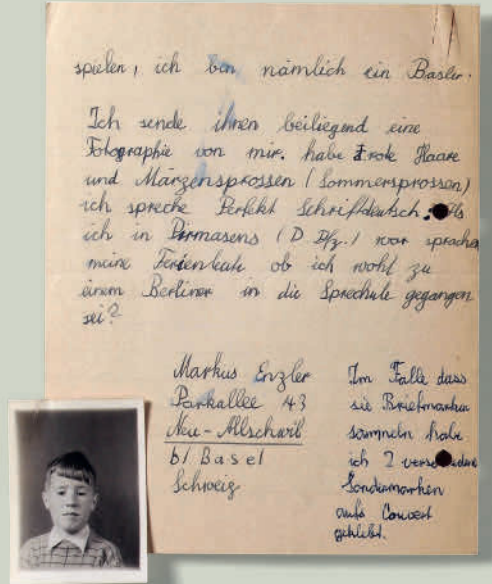 spielen, ich bin nämlich ein Basler.
Ich sende ihnen beiliegend eine
Fotographie von mir. habe rote Haare
und Märzensprossen (Sommersprossen)
ich spreche Perfekt Schriftdeutsch. Als
ich in Pirmasens (D Pfz.) war sprachen
meine Ferienleute ob ich wohl zu
einem Berliner in die Sprechule gegangen
sei?
Markus Enzler
Parkallee 43
Neu-Allschwil
b/ Basel
Schweiz
Im Falle dass
sie Briefmarken
sammeln habe
ich 2 verschiedene
Sondermarken
aufs Couvert
geklebt.